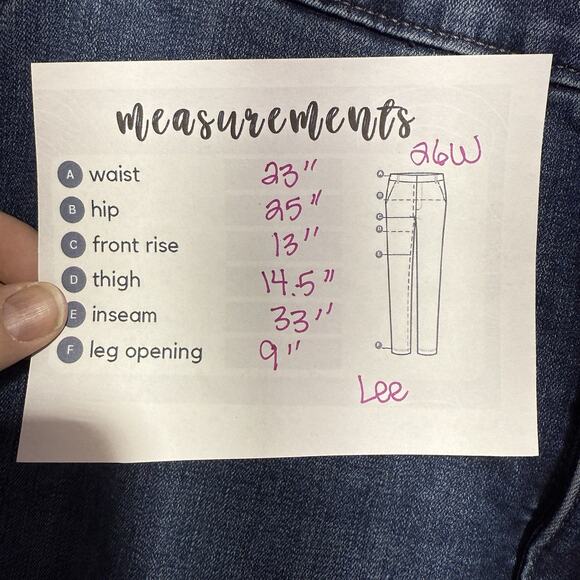 measurements
26W
A waist 23"
B hip 25"
C front rise 13"
D thigh 14.5"
E inseam 33"
F leg opening 9"
Lee